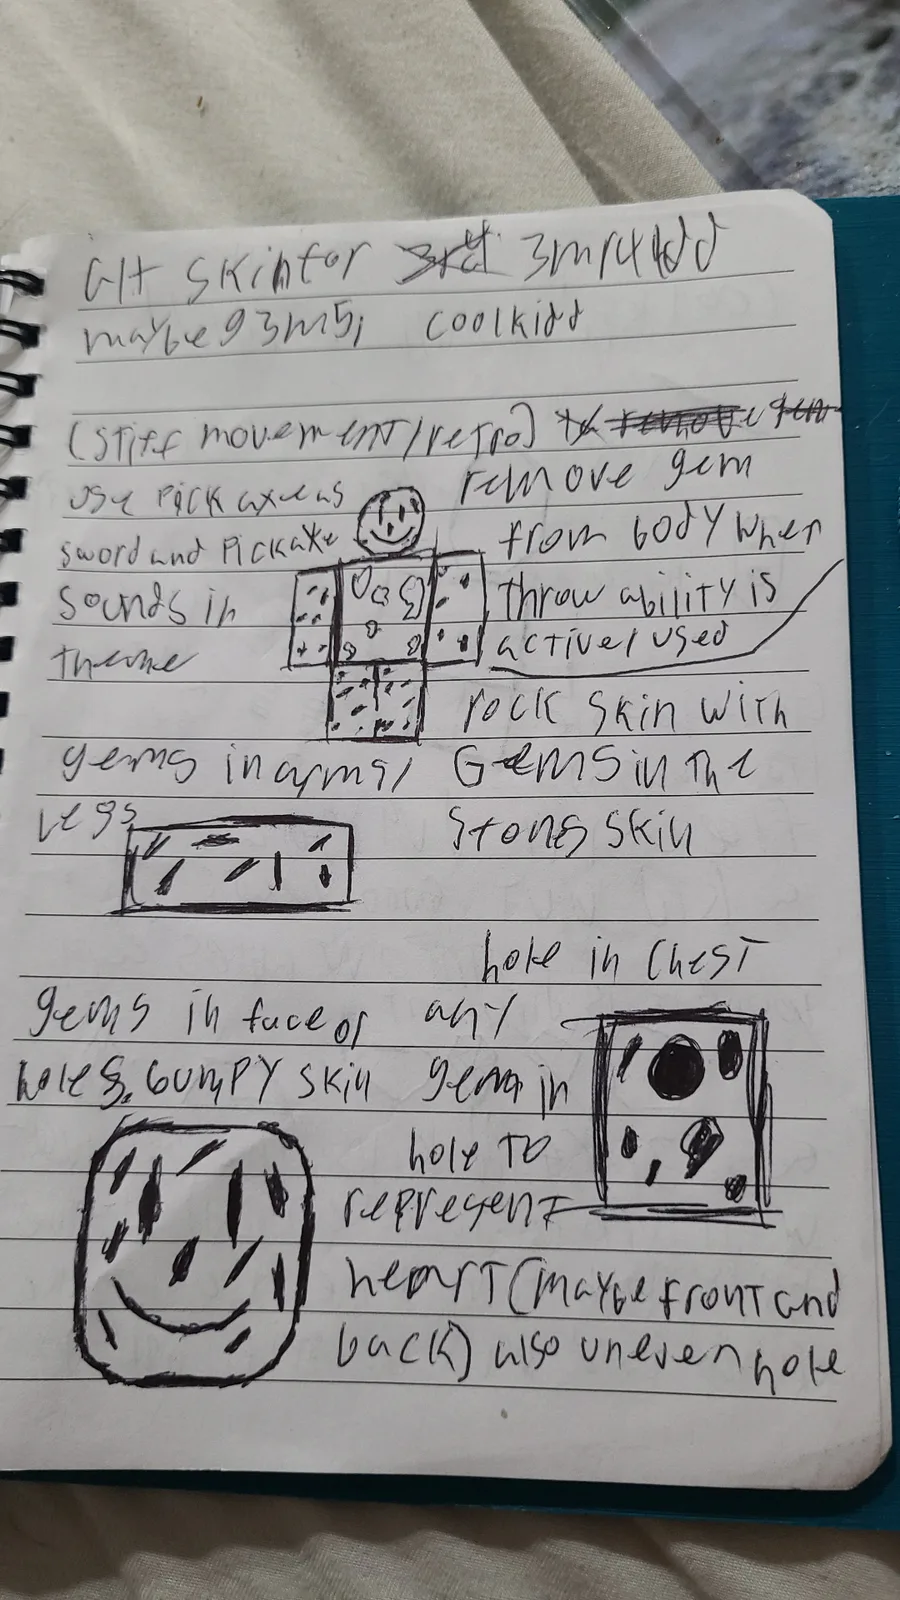 Alt skin for 3m141dd
maybe g3m5; coolkidd
(stiff movement/retro)
use pickaxe as
sword and pickaxe
sounds in
theme
remove gem
from body when
throw ability is
active/used
rock skin with
Gems in the
stone skin
gems in arms/
legs
hole in chest
gems in face or
holes. bumpy skin
any
gem in
hole to
represent
heart (maybe front and
back) also uneven hole